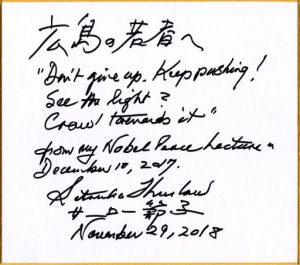 広島の若者へ
"Don't give up. Keep pushing!
See the light?
Crawl towards it"
from my Nobel Peace Lecture on
December 10, 2017.
Setsuko Thurlow
サーロー節子
November 29, 2018